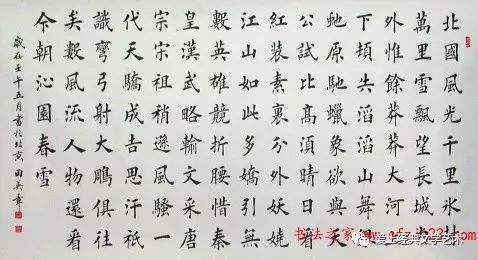 北國風光千里氷封
萬里雪飄望長城內
外惟餘莽莽大河上
下頓失滔滔山舞銀
虵原馳蠟象欲與天
公試比高須晴日看
紅裝素裹分外妖嬈
江山如此多嬌引無
數英雄競折腰惜秦
皇漢武略輸文采唐
宗宋祖稍遜風騷一
代天驕成吉思汗祇
識彎弓射大鵰俱往
矣數風流人物還看
今朝沁園春雪
歲在壬午五月書於北京 田英章
书法之家
爱上经典文学艺术